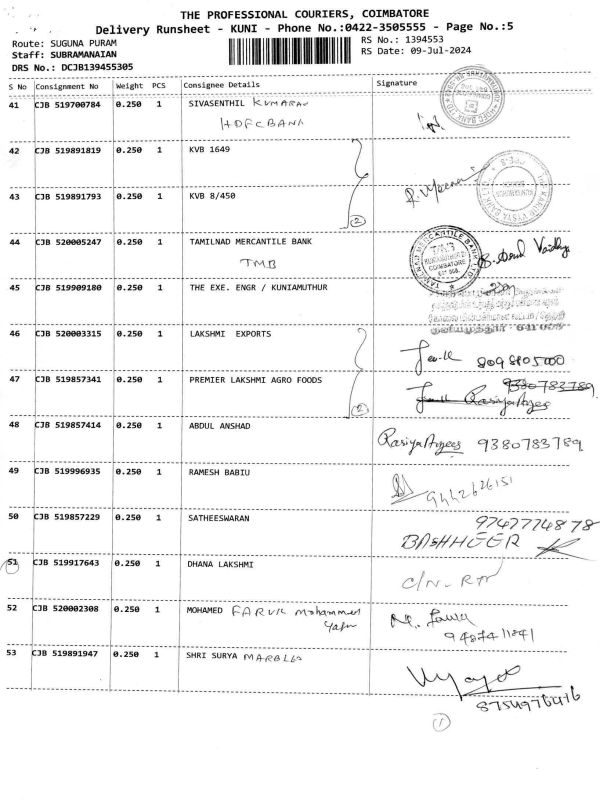 THE PROFESSIONAL COURIERS, COIMBATORE
Delivery Runsheet - KUNI - Phone No.:0422-3505555 - Page No.:5
Route: SUGUNA PURAM
RS No.: 1394553
Staff: SUBRAMANAIAN
RS Date: 09-Jul-2024
DRS No.: DCJB139455305
S No Consignment No Weight PCS Consignee Details Signature
41 CJB 519700784 0.250 1 SIVASENTHIL KUMARAN
HDFC BANK
42 CJB 519891819 0.250 1 KVB 1649
43 CJB 519891793 0.250 1 KVB 8/450
2
44 CJB 520005247 0.250 1 TAMILNAD MERCANTILE BANK
TMB
TAMILNAD MERCANTILE BANK LTD
COIMBATORE
45 CJB 519909180 0.250 1 THE EXE. ENGR / KUNIAMUTHUR
46 CJB 520003315 0.250 1 LAKSHMI EXPORTS
47 CJB 519857341 0.250 1 PREMIER LAKSHMI AGRO FOODS 9380783789
2
48 CJB 519857414 0.250 1 ABDUL ANSHAD 9380783789
49 CJB 519996935 0.250 1 RAMESH BABIU 9442626151
50 CJB 519857229 0.250 1 SATHEESWARAN 9747774878
BASHHEER
51 CJB 519917643 0.250 1 DHANA LAKSHMI
C/N-RTN
52 CJB 520002308 0.250 1 MOHAMED FARUK Mohammed
53 CJB 519891947 0.250 1 SHRI SURYA MARBLES
8754976416
1